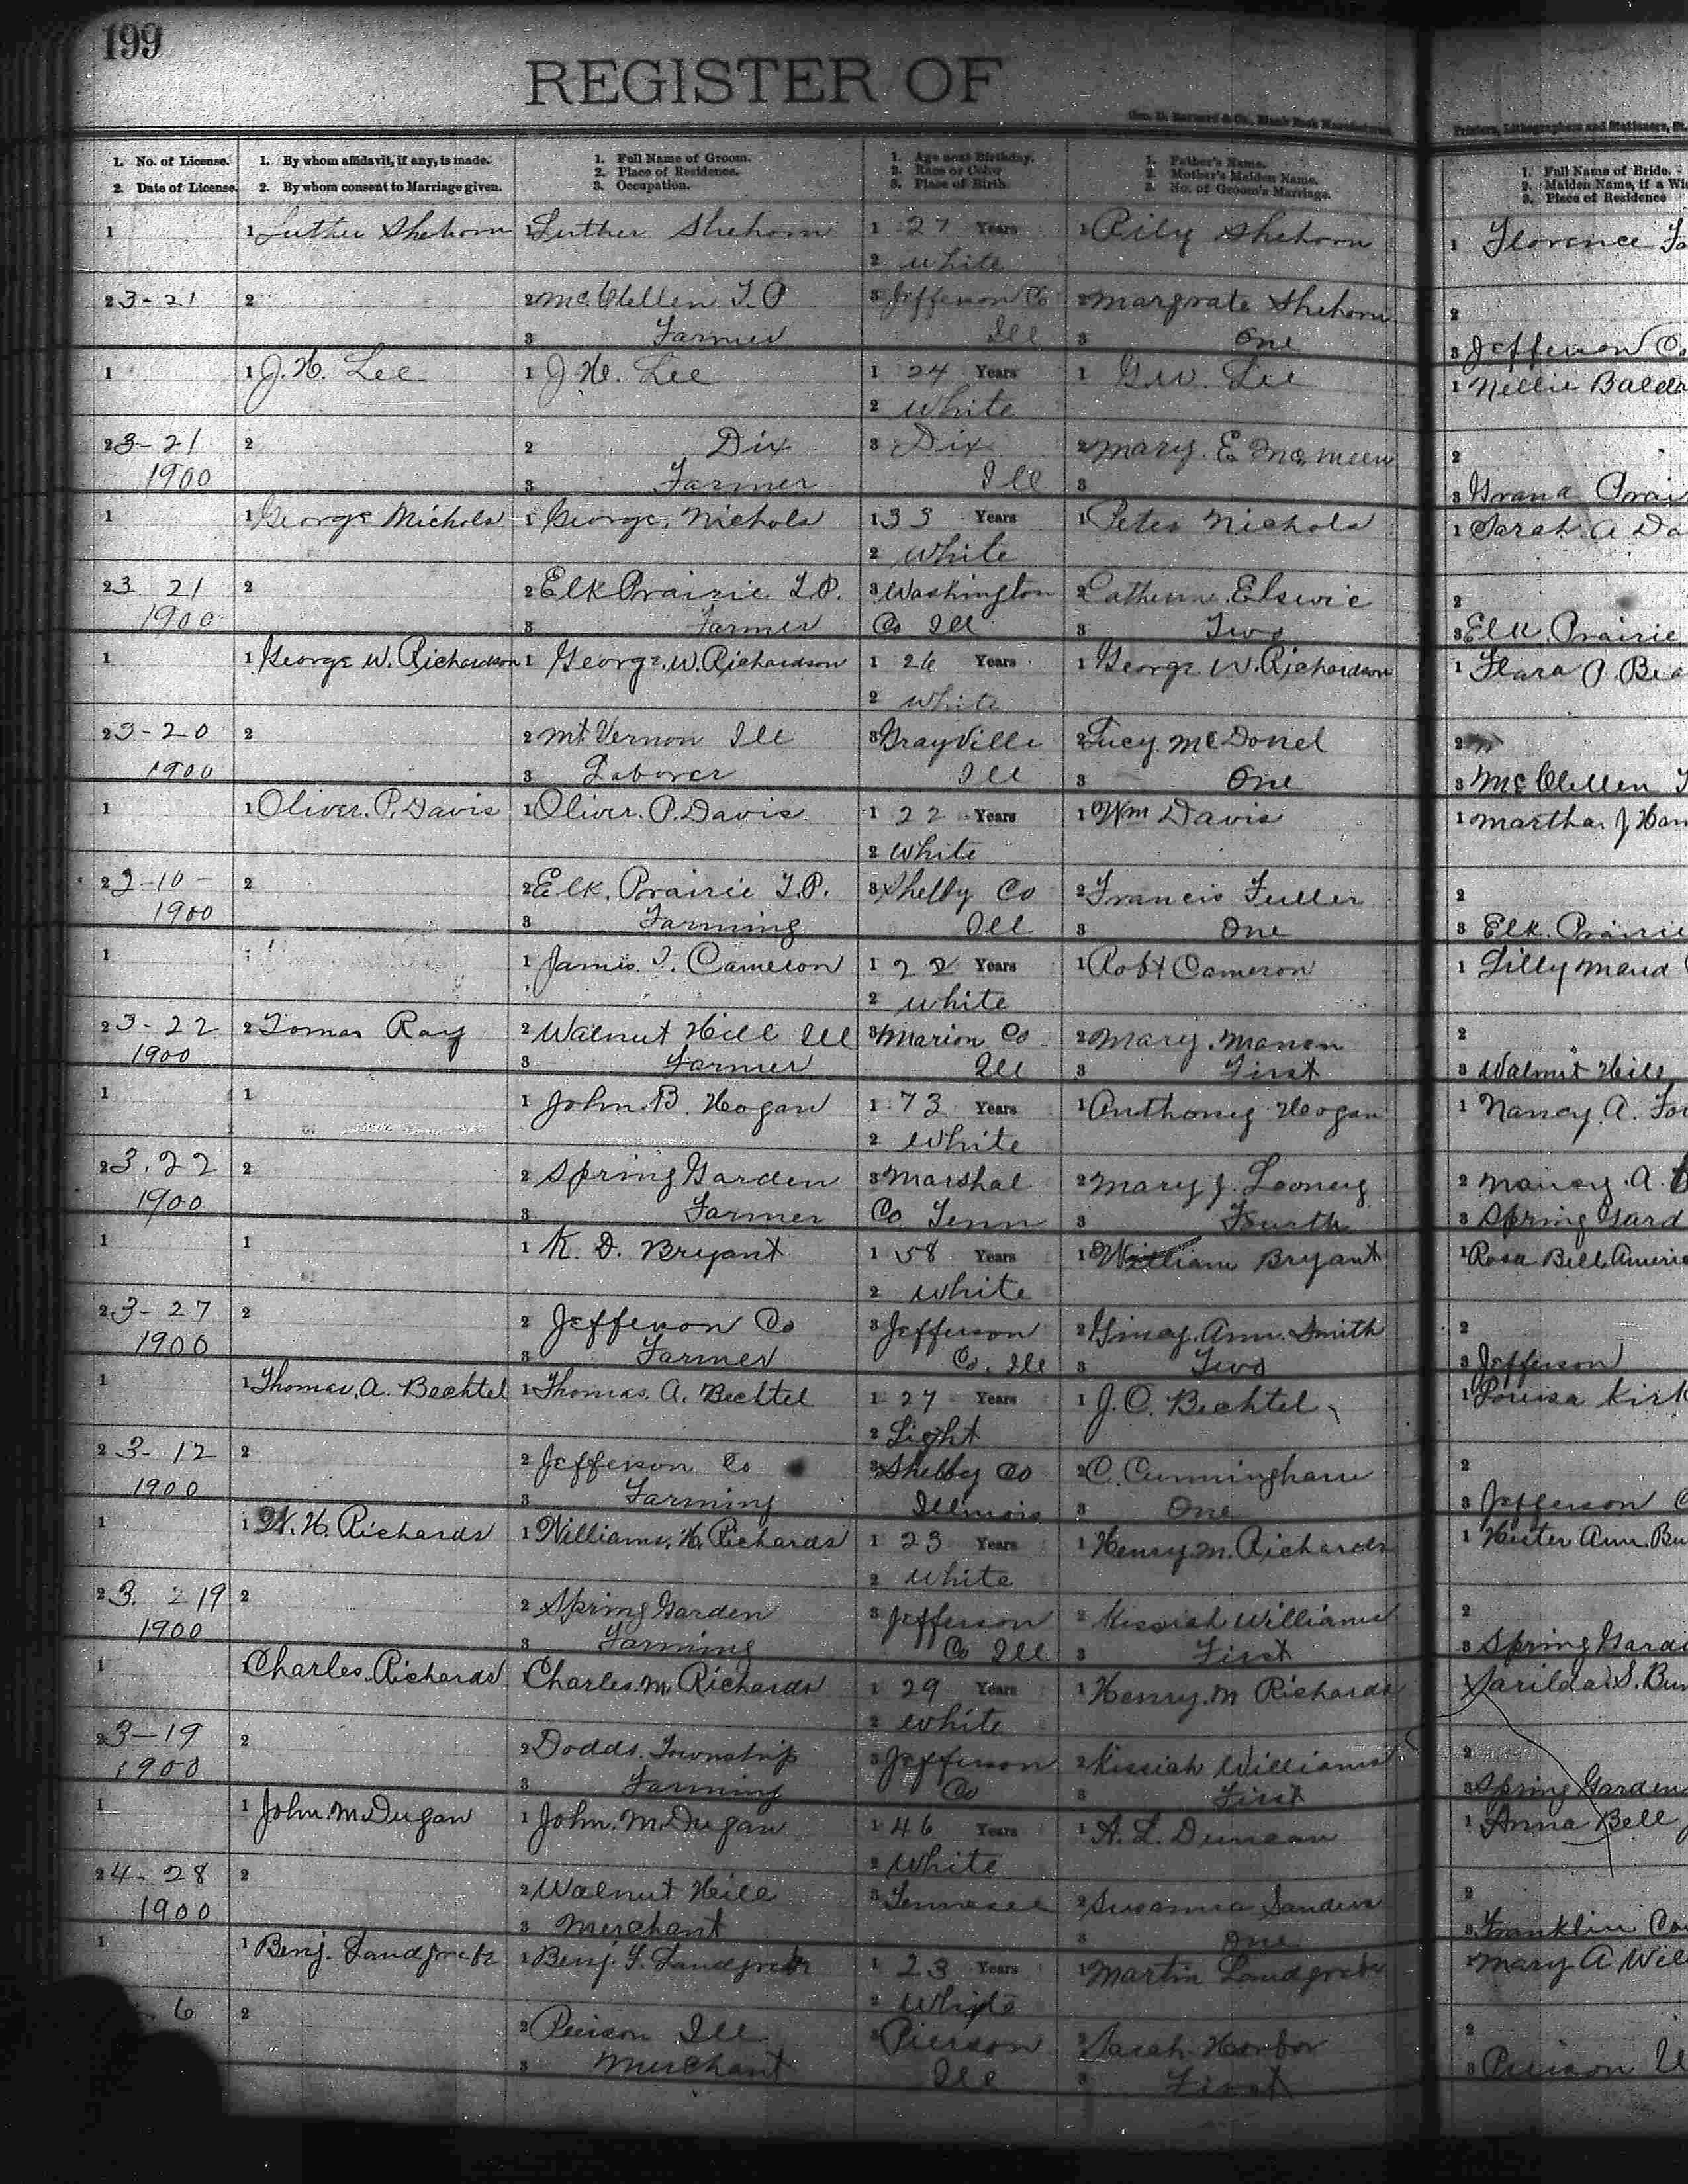 199
REGISTER OF
Geo. D. Barnard & Co., Blank Book Manufacturers,
Printers, Lithographers and Stationers, St.
1. No. of License.
2. Date of License.
1. By whom affidavit, if any, is made.
2. By whom consent to Marriage given.
1. Full Name of Groom.
2. Place of Residence.
3. Occupation.
1. Age next Birthday.
2. Race or Color
3. Place of Birth.
1. Father's Name.
2. Mother's Maiden Name.
3. No. of Groom's Marriage.
1. Full Name of Bride.
2. Maiden Name, if a Wi
3. Place of Residence
1 1 Luther Shehorn 1 Luther Shehorn 1 27 Years 1 Rily Shehorn 1 Florence
2 white
2 3-21 2 2 McClellen T.P 3 Jefferson Co 2 Margrate Shehorn 2
3 Farmer Ill 3 One 3 Jefferson Co
1 1 J. H. Lee 1 J H. Lee 1 24 Years 1 G.W. Lee 1 Nellie
2 White
2 3-21 2 2 Dix 3 Dix 2 Mary. E 2
1900 3 Farmer Ill 3 3 Grand Prai
1 1 George Nichols 1 George Nichols 1 33 Years 1 Peter Nichols 1 Sarah A Da
2 White
2 3 21 2 2 Elk Prairie T.P. 3 Washington 2 Catherine Elswic 2
1900 3 Farmer Co Ill 3 Two 3 Elk Prairie
1 1 George W. Richardson 1 George W. Richardson 1 26 Years 1 George W. Richardson 1 P. Bea
2 White
2 3-20 2 2 Mt Vernon Ill 3 Grayville 2 Lucy McDonel 2
1900 3 Laborer Ill 3 One 3 McClellen T
1 1 Oliver. P. Davis 1 Oliver. P. Davis 1 22 Years 1 Wm Davis 1 Martha J Han
2 White
2 3-10- 2 2 Elk. Prairie T.P. 3 Shelby Co 2 Francis Fuller 2
1900 3 Farming Ill 3 One 3 Elk. Prairie
1 1 1 James. T. Cameron 1 22 Years 1 Robt Cameron 1 Lilly Maud
2 White
2 3-22 2 Tomas Ray 2 Walnut Hill Ill 3 Marion Co 2 Mary. 2
1900 3 Farmer Ill 3 First 3 Walnut Hill
1 1 1 John. B. Hogan 1 73 Years 1 Anthony Hogan 1 Nancy. A.
2 White
2 3.22 2 2 Spring Garden 3 Marshal 2 Mary J. Looney 2 Nancy. A.
1900 3 Farmer Co Tenn 3 Fourth 3 Spring Gard
1 1 1 K. D. Bryant 1 58 Years 1 William Bryant 1 Rosa Bell
2 White
2 3-27 2 2 Jefferson Co 3 Jefferson 2 Ann. Smith 2
1900 3 Farmer Co. Ill 3 Two 3 Jefferson
1 1 Thomas. A. Bechtel 1 Thomas. A. Bechtel 1 27 Years 1 J. C. Bechtel 1 Louisa Kirk
2 Light
2 3-12 2 2 Jefferson Co 3 Shelby Co 2 C. Cunningham 2
1900 3 Farming Illinois 3 One 3 Jefferson C
1 1 W. H. Richards 1 Williams. H. Richards 1 23 Years 1 Henry. M. Richards 1 Hester Ann. Bu
2 White
2 3. 219 2 2 Spring Garden 3 Jefferson 2 Kissiah Williams 2
1900 3 Farming Co Ill 3 First 3 Spring Garde
1 1 Charles. Richards 1 Charles. M Richards 1 29 Years 1 Henry. M Richards 1 Sarilda S. Bun
2 White
2 3-19 2 2 Dodds. Township 3 Jefferson 2 Kissiah Williams 2
1900 3 Farming Co 3 First 3 Spring Garden
1 1 John. M. Dugan 1 John. M. Dugan 1 46 Years 1 A. L. Duncan 1 Anna Bell
2 White
2 4-28 2 2 Walnut Hill 3 Tennesee 2 Susanna Sanders 2
1900 3 Merchant 3 One 3 Franklin Co
1 1 Benj. Landgrebe 1 Benj. F. Landgrebe 1 23 Years 1 Martin Landgrebe 1 Mary A Wil
2 White
6 2 2 Pierson Ill 3 Pierson 2 Sarah Harbor 2
3 Merchant Ill 3 First 3 Pierson